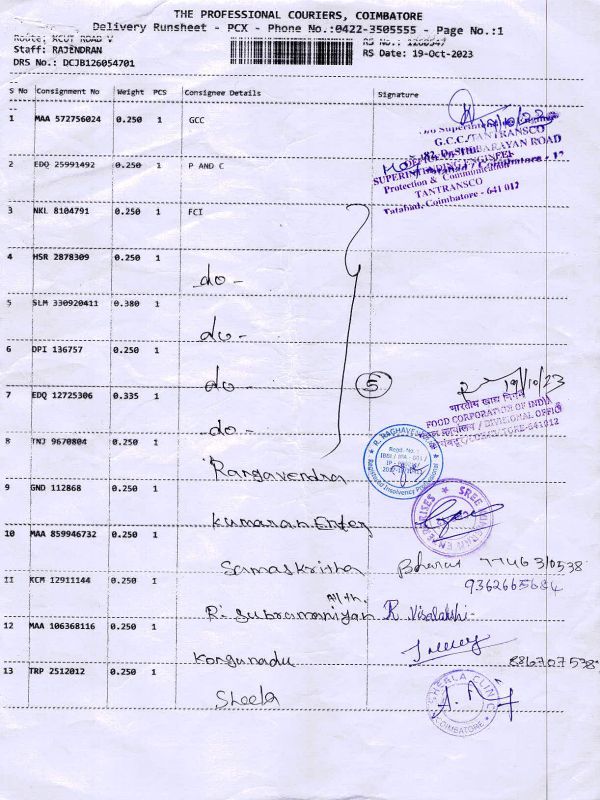 THE PROFESSIONAL COURIERS, COIMBATORE
Delivery Runsheet - PCX - Phone No.:0422-3505555 - Page No.:1
Route: XCUT ROAD V RS No.: 1260547
Staff: RAJENDRAN RS Date: 19-Oct-2023
DRS No.: DCJB126054701
S No Consignment No Weight PCS Consignee Details Signature
1 MAA 572756024 0.250 1 GCC
G.C.C. TANTRANSCO
2 EDQ 25991492 0.250 1 P AND C
SUPERINTENDING ENGINEER
Protection & Communication
TANTRANSCO
Tatabad, Coimbatore - 641 012
3 NKL 8104791 0.250 1 FCI
4 HSR 2878309 0.250 1 do -
5 SLM 330920411 0.380 1 do -
6 DPI 136757 0.250 1 do - 5 19/10/23
7 EDQ 12725306 0.335 1 do -
भारतीय खाद्य निगम
FOOD CORPORATION OF INDIA
/ DIVISIONAL OFFICE
/ COIMBATORE-641012
8 TNJ 9670804 0.250 1 Rangavendra
R. RAGHAVENDRAN
Regd. No.:
Registered Insolvency Professional
9 GND 112868 0.250 1 Kumaran Enter
SREE KUMARAN ENTERPRISES
10 MAA 859946732 0.250 1 Samaskritha Bharat 77463 10538
9362665684
11 KCM 12911144 0.250 1 R. Subramaniyan R. Visalakshi
12 MAA 106368116 0.250 1 Kongunadu 8867075387
13 TRP 2512012 0.250 1 Sheela
SHEELA CLINIC
COIMBATORE